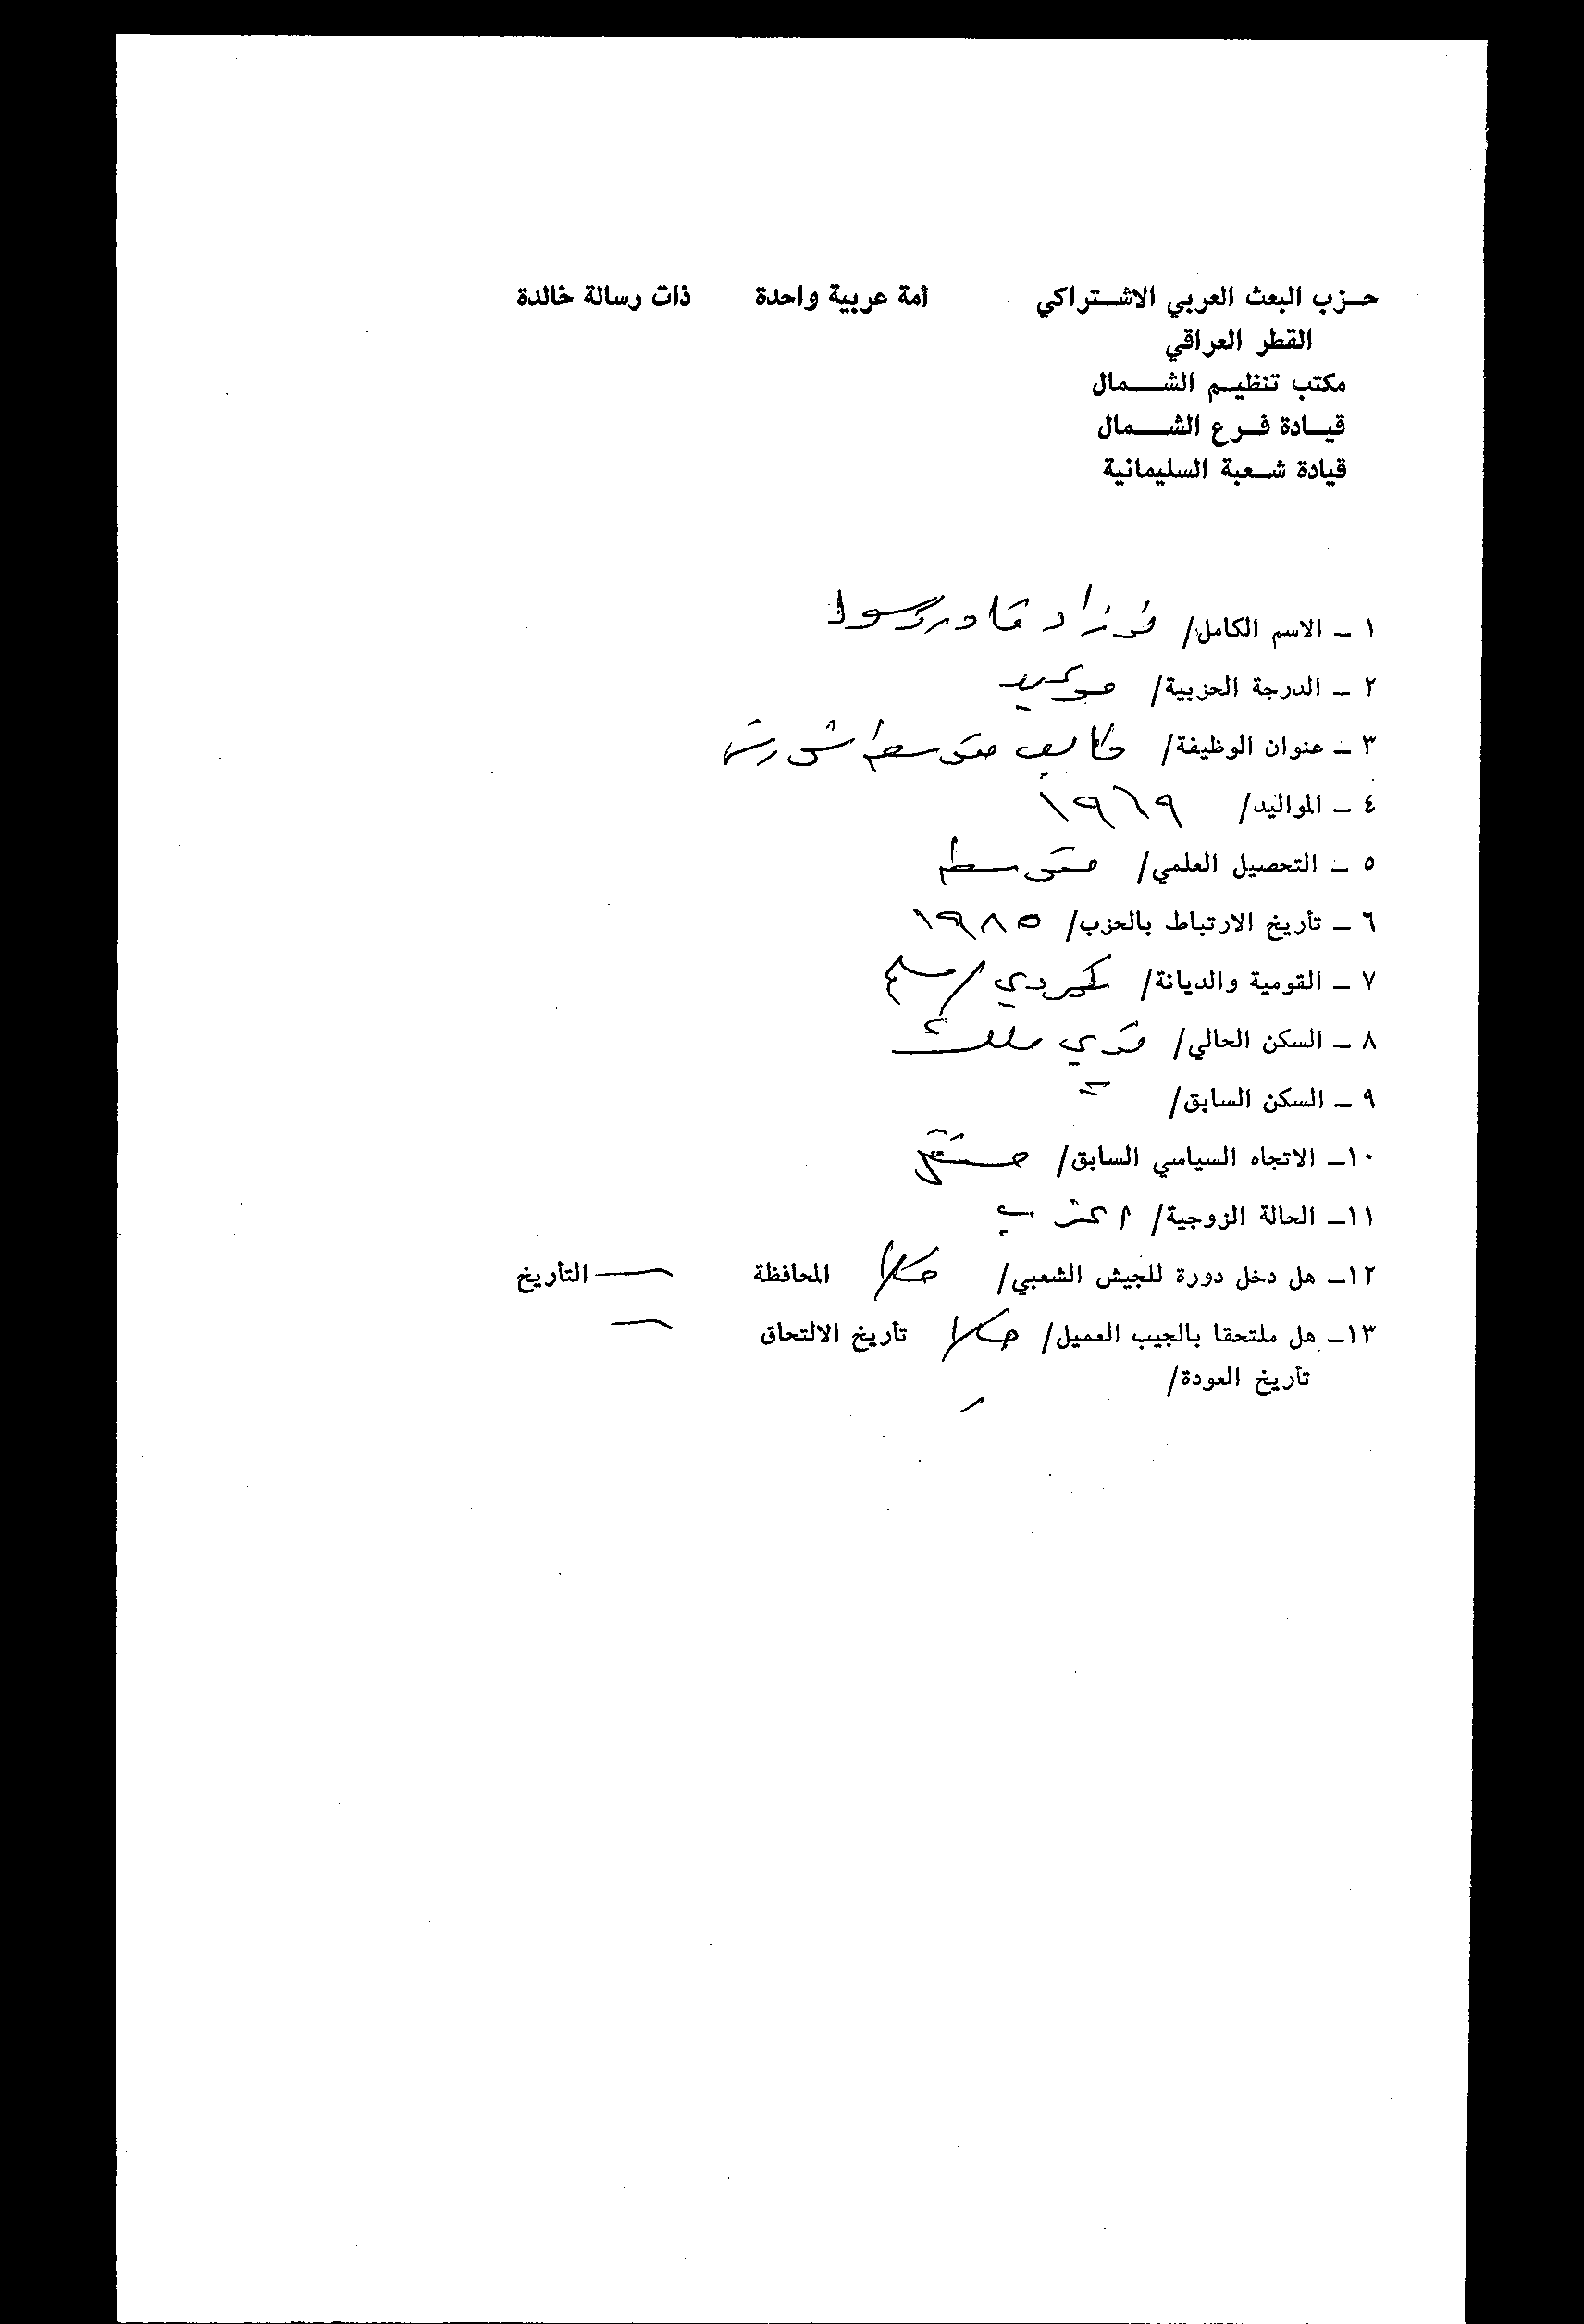 حزب البعث العربي الاشتراكي أمة عربية واحدة ذات رسالة خالدة
القطر العراقي
مكتب تنظيم الشمال
قيادة فرع الشمال
قيادة شعبة السليمانية
١ - الاسم الكامل/ فرزاد قادر رسول
٢ - الدرجة الحزبية/ مويد
٣ - عنوان الوظيفة/ طالب متوسطة شورش
٤ - المواليد/ ١٩٦٩
٥ - التحصيل العلمي/ متوسط
٦ - تأريخ الارتباط بالحزب/ ١٩٨٥
٧ - القومية والديانة/ كردي / مسلم
٨ - السكن الحالي/ ملك
٩ - السكن السابق/ =
١٠- الاتجاه السياسي السابق/ مستقل
١١- الحالة الزوجية/ اعزب
١٢- هل دخل دورة للجيش الشعبي/ كلا المحافظة — التأريخ
١٣- هل ملتحقا بالجيب العميل/ كلا تأريخ الالتحاق —
تأريخ العودة/